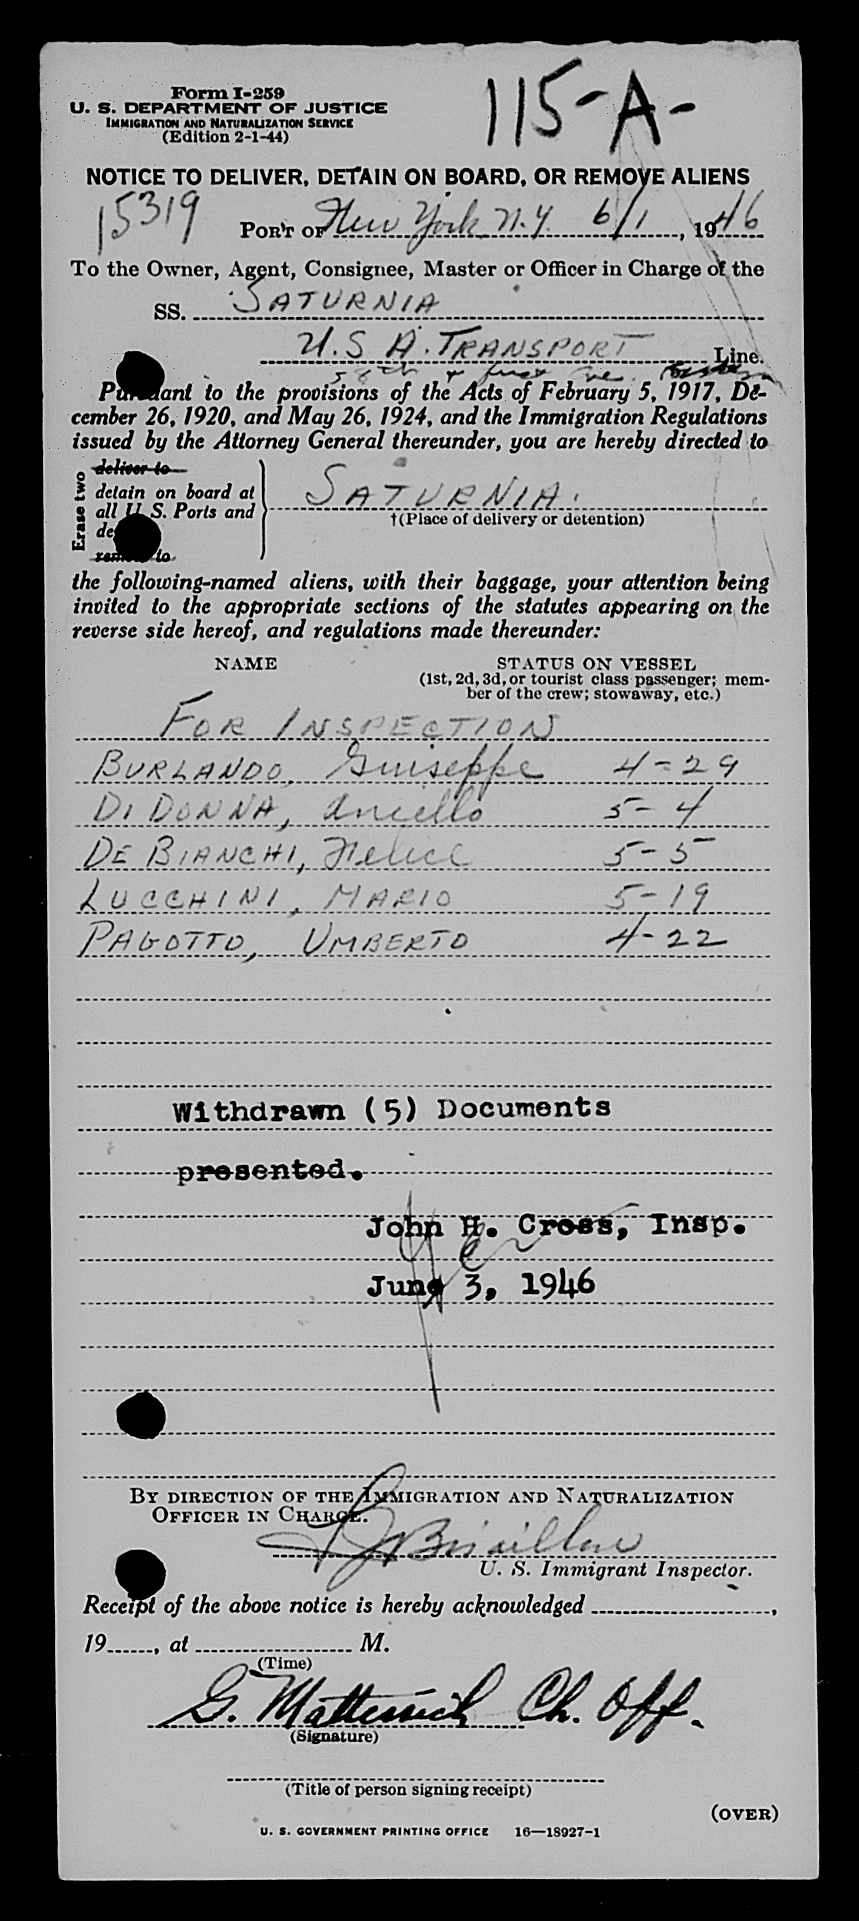 Form I-259
U. S. DEPARTMENT OF JUSTICE
IMMIGRATION AND NATURALIZATION SERVICE
(Edition 2-1-44)
115-A-
NOTICE TO DELIVER, DETAIN ON BOARD, OR REMOVE ALIENS
15319
PORT OF New York N.Y. 6/1, 1946
To the Owner, Agent, Consignee, Master or Officer in Charge of the
SS. SATURNIA
U.S A. TRANSPORT Line.
58th & first ave
Pursuant to the provisions of the Acts of February 5, 1917, De-
cember 26, 1920, and May 26, 1924, and the Immigration Regulations
issued by the Attorney General thereunder, you are hereby directed to
Erase two
deliver to
detain on board at
all U. S. Ports and
remove to
SATURNIA.
†(Place of delivery or detention)
the following-named aliens, with their baggage, your attention being
invited to the appropriate sections of the statutes appearing on the
reverse side hereof, and regulations made thereunder:
NAME STATUS ON VESSEL
(1st, 2d, 3d, or tourist class passenger; mem-
ber of the crew; stowaway, etc.)
FOR INSPECTION
BURLANDO, Guiseppe 4-29
DI DONNA, Aniello 5-4
DE BIANCHI, Felice 5-5
LUCCHINI, MARIO 5-19
PAGOTTO, UMBERTO 4-22
Withdrawn (5) Documents
presented.
John H. Cross, Insp.
June 3, 1946
BY DIRECTION OF THE IMMIGRATION AND NATURALIZATION
OFFICER IN CHARGE.
U. S. Immigrant Inspector.
Receipt of the above notice is hereby acknowledged ,
19 , at M.
(Time)
G. Ch. Off.
(Signature)
(Title of person signing receipt)
(OVER)
U. S. GOVERNMENT PRINTING OFFICE 16—18927-1